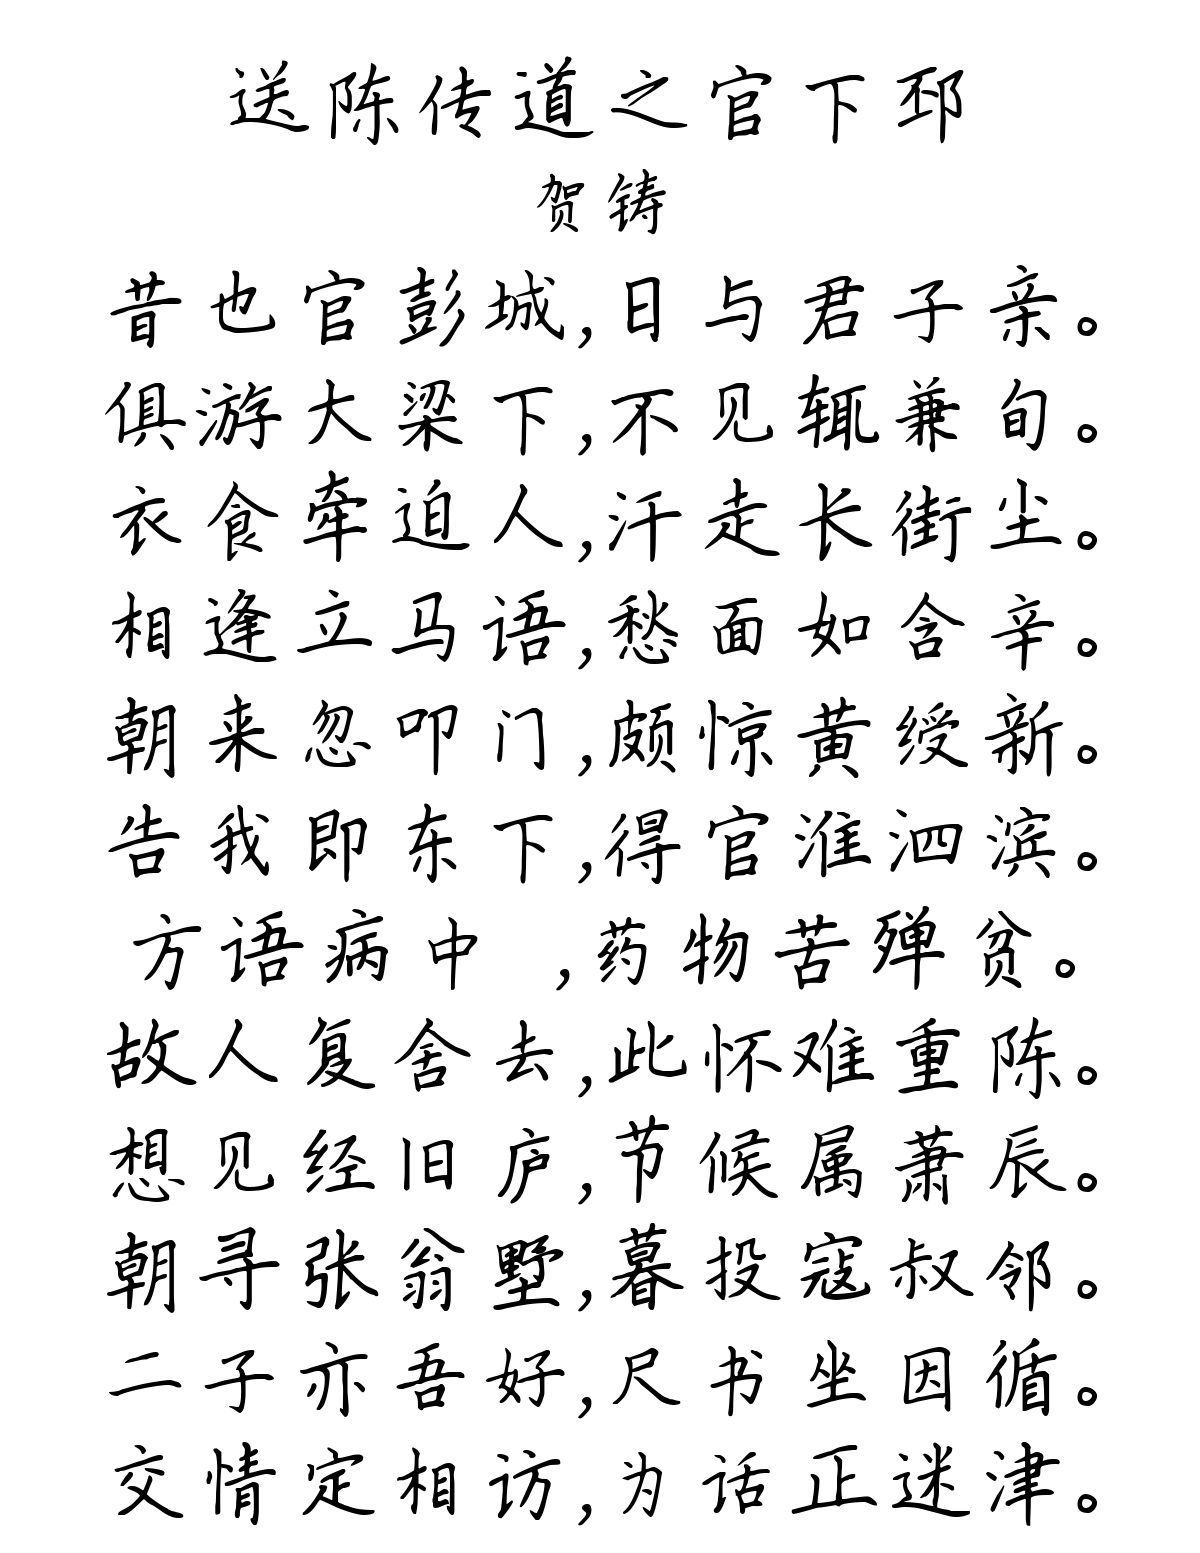 送陈传道之官下邳
贺铸
昔也官彭城,日与君子亲。
俱游大梁下,不见辄兼旬。
衣食牵迫人,汗走长街尘。
相逢立马语,愁面如含辛。
朝来忽叩门,颇惊黄绶新。
告我即东下,得官淮泗滨。
方语病中 ,药物苦殚贫。
故人复舍去,此怀难重陈。
想见经旧庐,节候属萧辰。
朝寻张翁墅,暮投寇叔邻。
二子亦吾好,尺书坐因循。
交情定相访,为话正迷津。